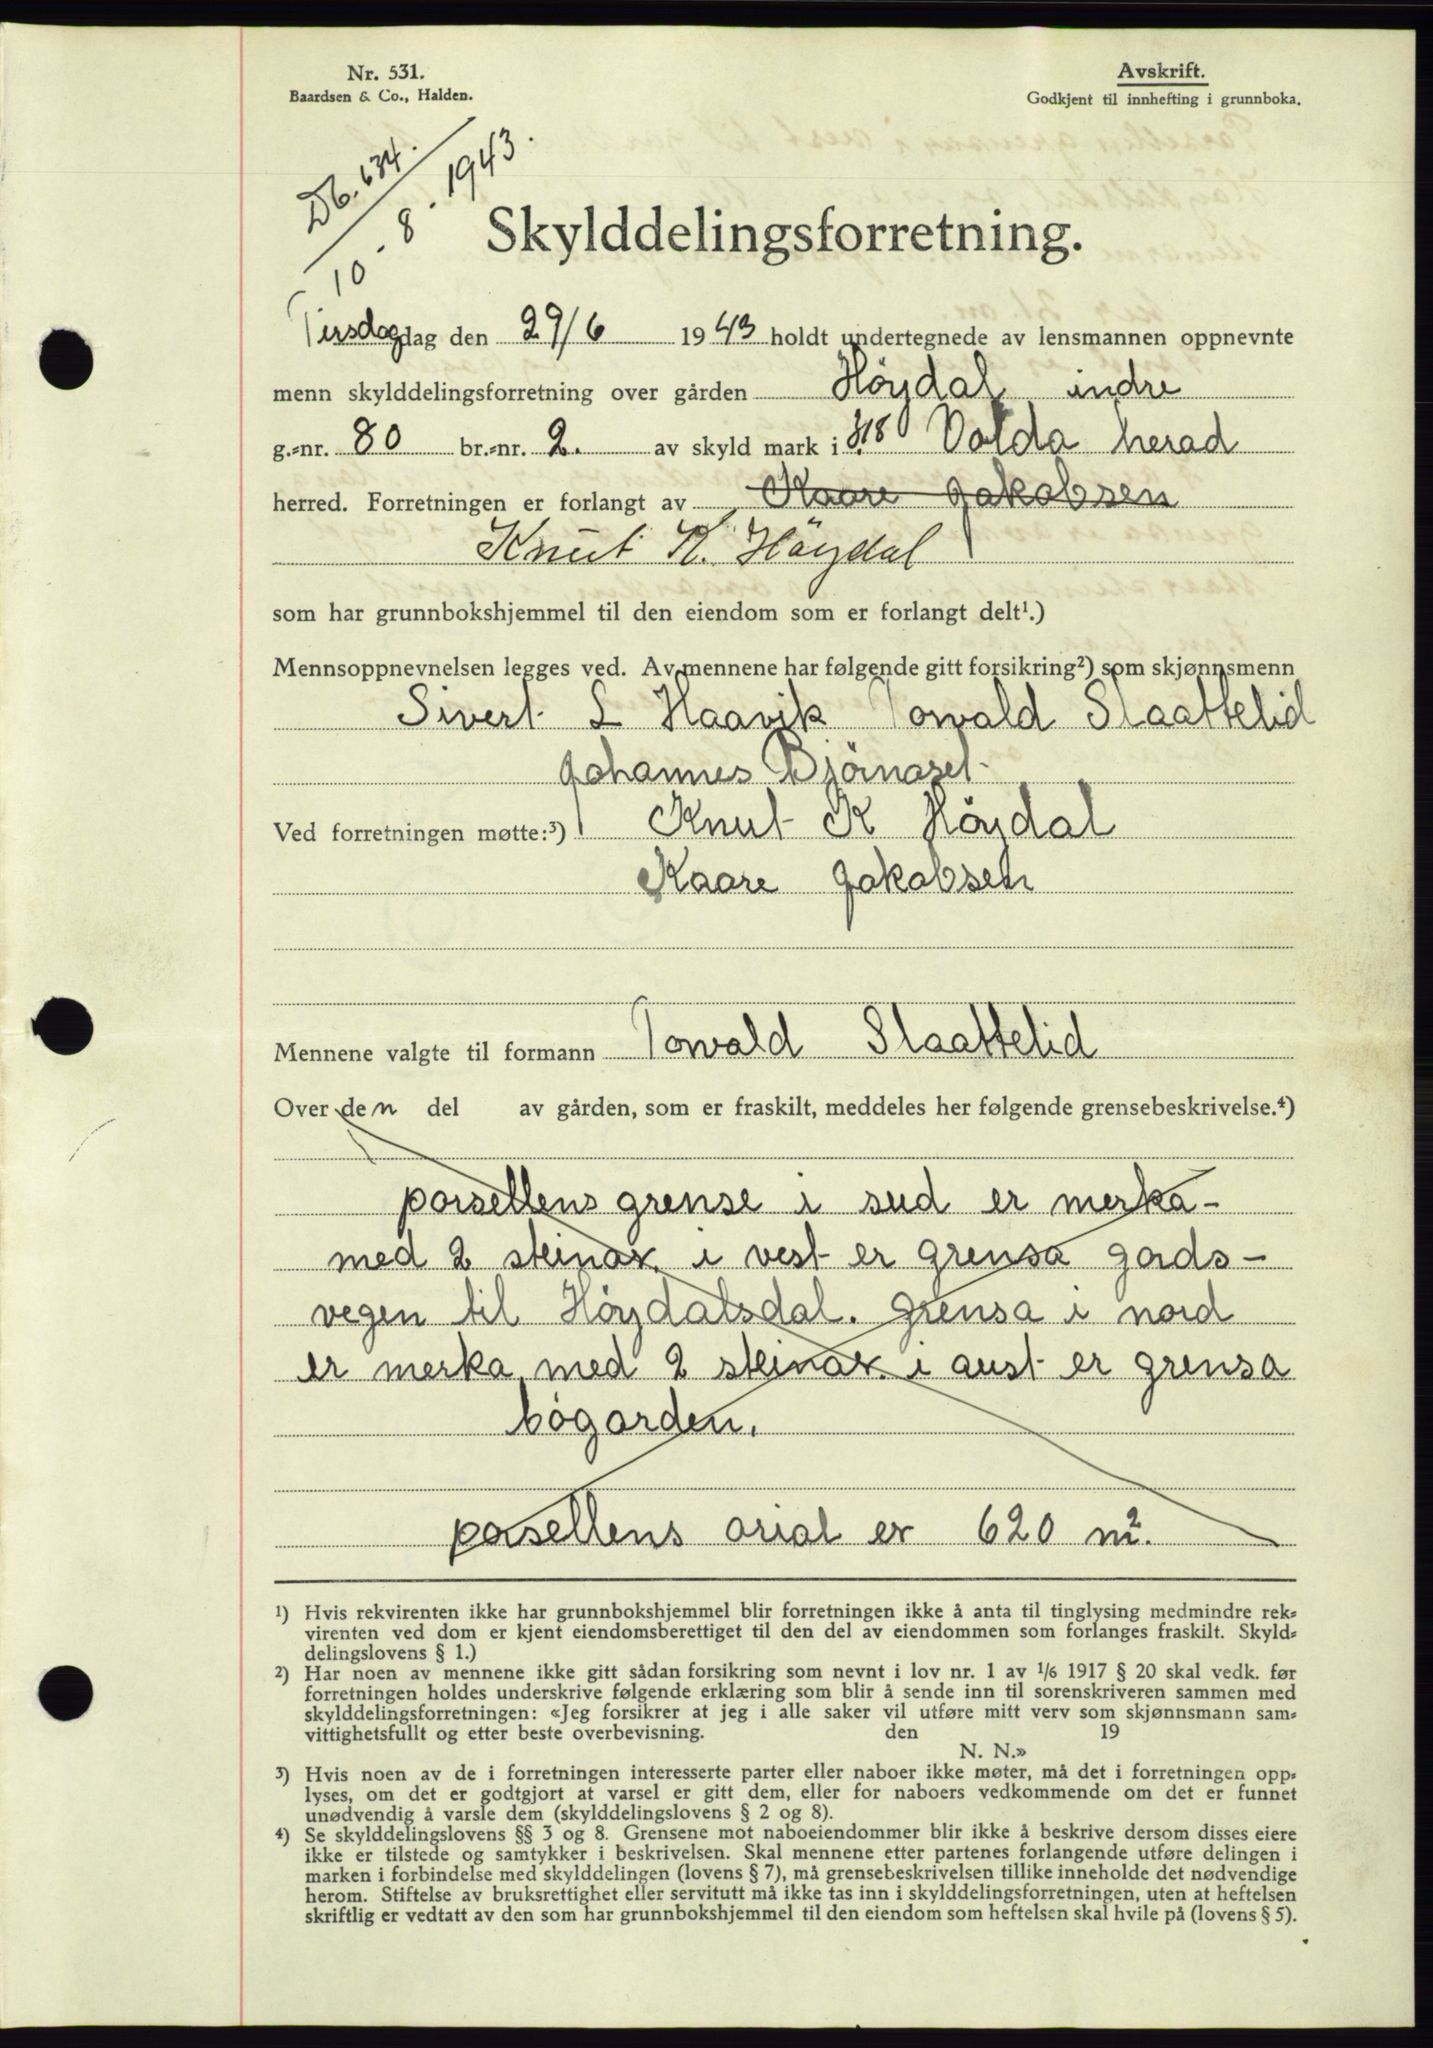 Nr. 531.
Baardsen & Co., Halden.
Avskrift.
Godkjent til innhefting i grunnboka.
Db. 634.
10 - 8 - 1943.
Skylddelingsforretning.
Tirsdag dag den 29/6 1943 holdt undertegnede av lensmannen oppnevnte
menn skylddelingsforretning over gården Höydal indre
g.-nr. 80 br.-nr. 2. av skyld mark i Volda herad
herred. Forretningen er forlangt av Kaare Jakobsen
Knut K. Höydal
som har grunnbokshjemmel til den eiendom som er forlangt delt¹.)
Mennsoppnevnelsen legges ved. Av mennene har følgende gitt forsikring²) som skjønnsmenn
Sivert L Haavik Torvald Slaattelid
Johannes Bjørnaset
Ved forretningen møtte:³) Knut K Höydal
Kaare Jakobsen
Mennene valgte til formann Torvald Slaattelid
Over den del av gården, som er fraskilt, meddeles her følgende grensebeskrivelse.⁴)
parsellens grense i sud er merka-
med 2 steinar. i vest er grensa gards-
vegen til Höydalsdal. grensa i nord
er merka med 2 steinar. i aust er grensa
bøgarden.
parsellens arial er 620 m².
¹) Hvis rekvirenten ikke har grunnbokshjemmel blir forretningen ikke å anta til tinglysing medmindre rek-
virenten ved dom er kjent eiendomsberettiget til den del av eiendommen som forlanges fraskilt. Skyld-
delingslovens § 1.)
²) Har noen av mennene ikke gitt sådan forsikring som nevnt i lov nr. 1 av 1/6 1917 § 20 skal vedk. før
forretningen holdes underskrive følgende erklæring som blir å sende inn til sorenskriveren sammen med
skylddelingsforretningen: «Jeg forsikrer at jeg i alle saker vil utføre mitt verv som skjønnsmann sam-
vittighetsfullt og etter beste overbevisning. den 19
N. N.»
³) Hvis noen av de i forretningen interesserte parter eller naboer ikke møter, må det i forretningen opp-
lyses, om det er godtgjort at varsel er gitt dem, eller for naboers vedkommende om det er funnet
unødvendig å varsle dem (skylddelingslovens § 2 og 8).
⁴) Se skylddelingslovens §§ 3 og 8. Grensene mot naboeiendommer blir ikke å beskrive dersom disses eiere
ikke er tilstede og samtykker i beskrivelsen. Skal mennene etter partenes forlangende utføre delingen i
marken i forbindelse med skylddelingen (lovens § 7), må grensebeskrivelsen tillike inneholde det nødvendige
herom. Stiftelse av bruksrettighet eller servitutt må ikke tas inn i skylddelingsforretningen, uten at heftelsen
skriftlig er vedtatt av den som har grunnbokshjemmel til den eiendom som heftelsen skal hvile på (lovens § 5).